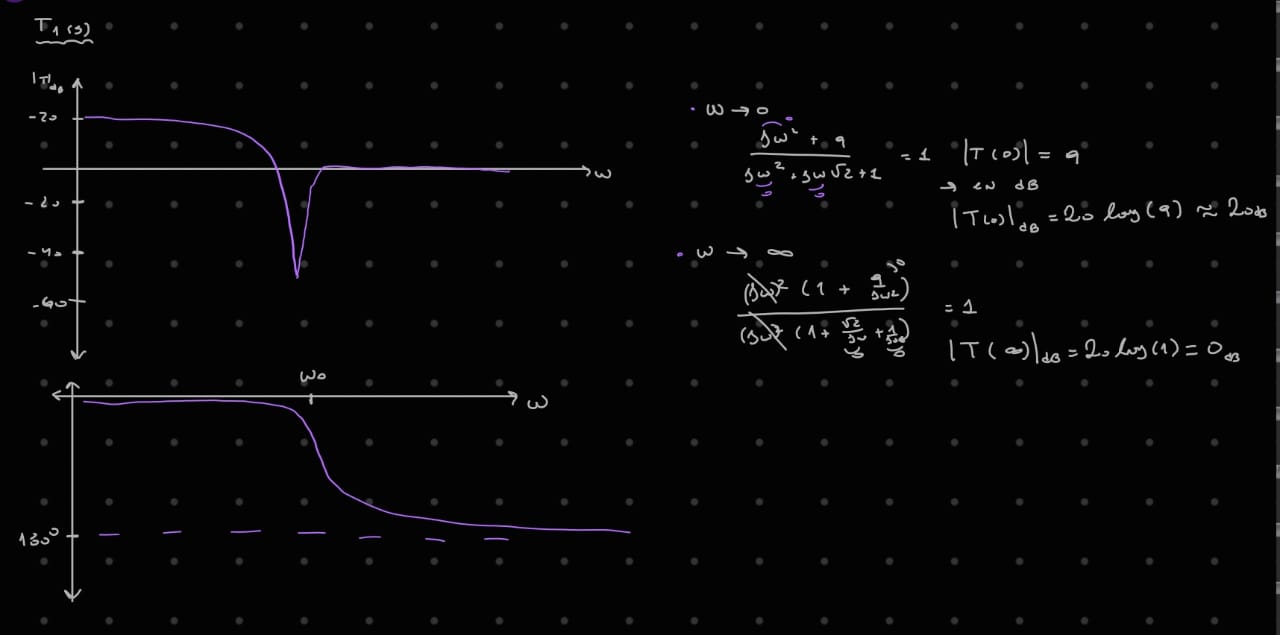 T₁(s)
|T|dB
-20
ω
-20
-40
-60
ω₀
ω
180°
• ω → 0
(jω² + 9) / (jω² + jω√2 + 1) = 1 |T(0)| = 9
0
0 0
→ en dB
|T(0)|dB = 20 log(9) ≈ 20dB
• ω → ∞
(jω)² (1 + 9/jω²) / (jω)² (1 + √2/jω + 1/jω²) = 1
0
0 0
|T(∞)|dB = 20 log(1) = 0dB